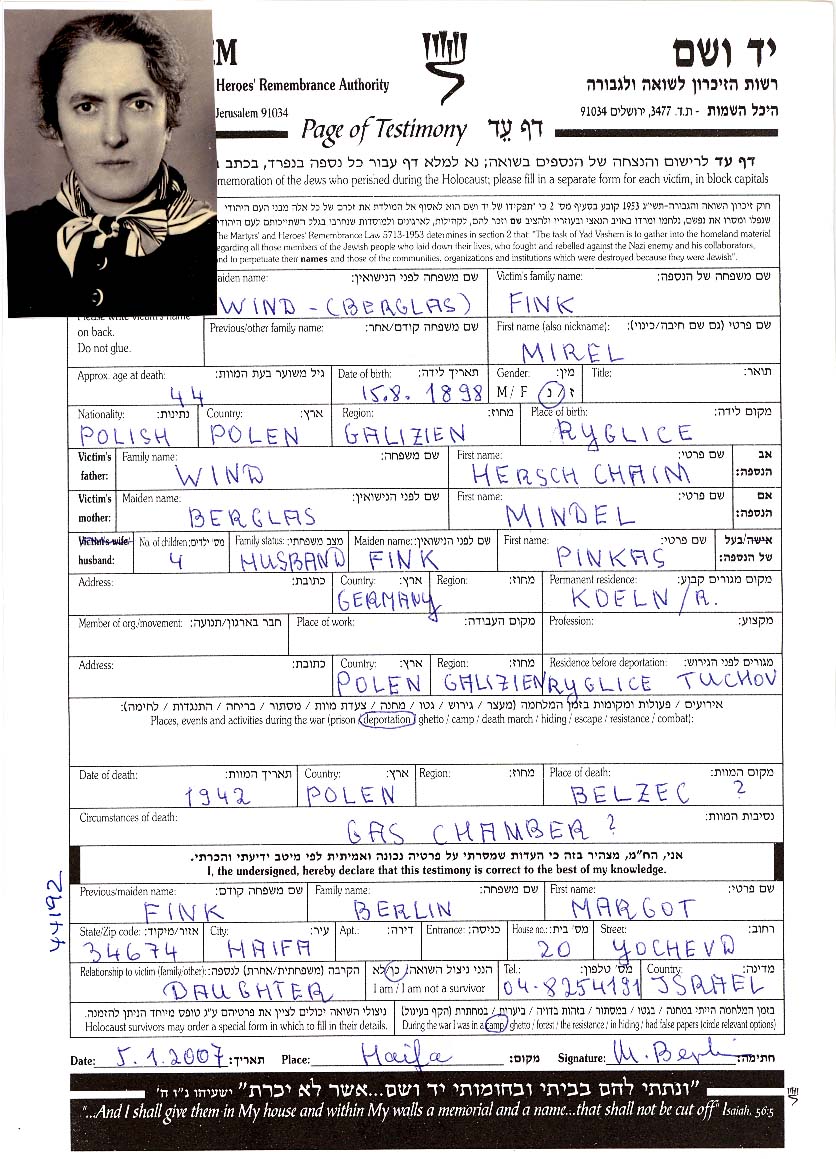 EM
יד ושם
Heroes' Remembrance Authority
רשות הזיכרון לשואה ולגבורה
Jerusalem 91034
היכל השמות - ת.ד. 3477, ירושלים 91034
Page of Testimony דף עד
דף עד לרישום והנצחה של הנספים בשואה; נא למלא דף עבור כל נספה בנפרד, בכתב
memoration of the Jews who perished during the Holocaust; please fill in a separate form for each victim, in block capitals
חוק זיכרון השואה והגבורה-תשי"ג 1953 קובע בסעיף מס' 2 כי "תפקידו של יד ושם הוא לאסוף אל המולדת את זכרם של כל אלה מבני העם היהודי
שנפלו ומסרו את נפשם, נלחמו ומרדו באויב הנאצי ובעוזריו ולהציב שם וזכר להם, לקהילות, לארגונים ולמוסדות שנחרבו בגלל השתייכותם לעם היהודי
The Martyrs' and Heroes' Remembrance Law 5713-1953 determines in section 2 that: "The task of Yad Vashem is to gather into the homeland material
regarding all those members of the Jewish people who laid down their lives, who fought and rebelled against the Nazi enemy and his collaborators,
and to perpetuate their names and those of the communities, organizations and institutions which were destroyed because they were Jewish".
aiden name: שם משפחה לפני הנישואין: Victim's family name: שם משפחה של הנספה:
WIND - (BERGLAS) FINK
on back.
Do not glue.
Previous/other family name: שם משפחה קודם/אחר: First name (also nickname): שם פרטי (גם שם חיבה/כינוי):
MIREL
Approx. age at death: גיל משוער בעת המוות: Date of birth: תאריך לידה: Gender: מין: Title: תואר:
44 15.8. 1898 M / F ז / נ
Nationality: נתינות: Country: ארץ: Region: מחוז: Place of birth: מקום לידה:
POLISH POLEN GALIZIEN RYGLICE
Victim's father: Family name: שם משפחה: First name: שם פרטי: אב הנספה:
WIND HERSCH CHAIM
Victim's mother: Maiden name: שם לפני הנישואין: First name: שם פרטי: אם הנספה:
BERGLAS MINDEL
Victim's wife/ husband: No. of children: מס' ילדים: Family status: מצב משפחתי: Maiden name: שם לפני הנישואין: First name: שם פרטי: אישה/בעל של הנספה:
4 HUSBAND FINK PINKAS
Address: כתובת: Country: ארץ: Region: מחוז: Permanent residence: מקום מגורים קבוע:
GERMANY KOELN/R.
Member of org./movement: חבר בארגון/תנועה: Place of work: מקום העבודה: Profession: מקצוע:
Address: כתובת: Country: ארץ: Region: מחוז: Residence before deportation: מגורים לפני הגירוש:
POLEN GALIZIEN RYGLICE TUCHOV
אירועים / פעולות ומקומות בזמן המלחמה (מעצר / גירוש / גטו / מחנה / צעדת מוות / מסתור / בריחה / התנגדות / לחימה):
Places, events and activities during the war (prison / deportation / ghetto / camp / death march / hiding / escape / resistance / combat):
Date of death: תאריך המוות: Country: ארץ: Region: מחוז: Place of death: מקום המוות:
1942 POLEN BELZEC ?
Circumstances of death: נסיבות המוות:
GAS CHAMBER ?
אני, הח"מ, מצהיר בזה כי העדות שמסרתי על פרטיה נכונה ואמיתית לפי מיטב ידיעתי והכרתי.
I, the undersigned, hereby declare that this testimony is correct to the best of my knowledge.
Previous/maiden name: שם משפחה קודם: Family name: שם משפחה: First name: שם פרטי:
FINK BERLIN MARGOT
State/Zip code: אזור/מיקוד: City: עיר: Apt.: דירה: Entrance: כניסה: House no.: מס' בית: Street: רחוב:
34674 HAIFA 20 YOCHEVD
Relationship to victim (family/other): הקרבה (משפחתית/אחרת) לנספה: הנני ניצול השואה: כן/לא Tel.: מס' טלפון: Country: מדינה:
DAUGHTER I am / I am not a survivor 04-8254191 ISRAEL
ניצולי השואה יכולים לציין את פרטיהם ע"ג טופס מייחד הניתן להזמנה. בזמן המלחמה הייתי במחנה / בגטו / במסתור / בזהות בדויה / ביערות / במחתרת (הקף בעיגול)
Holocaust survivors may order a special form in which to fill in their details. During the war I was in a camp / ghetto / forest / the resistance / in hiding / had false papers (circle relevant options)
44192
Date: 5.1.2007 תאריך: Place: Haifa מקום: Signature: M. Berlin חתימה:
"ונתתי להם בביתי ובחומותי יד ושם...אשר לא יכרת" ישעיהו נ"ו ה'
"...And I shall give them in My house and within My walls a memorial and a name...that shall not be cut off" Isaiah, 56:5